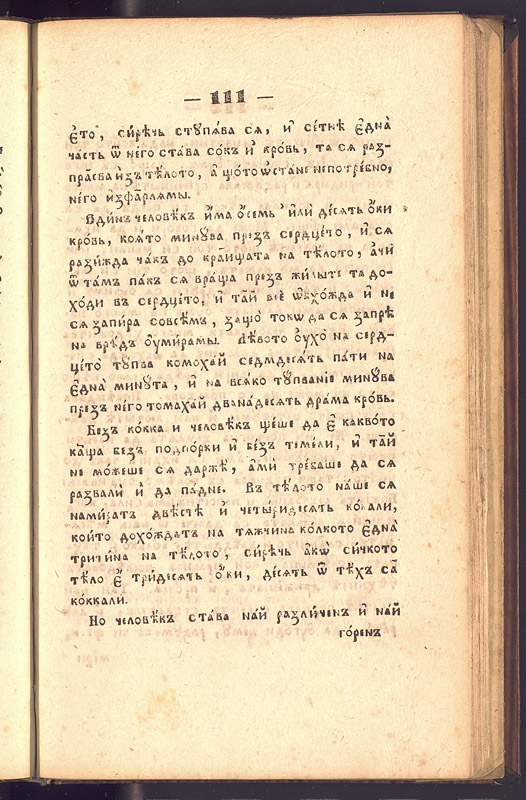 — 111 —
є҆то̀, си́рѣчь ступѧ́ва сѧ, и҆ се́тнѣ є҆дна̀
часть ѿ не́го ста́ва со́къ и҆ кро́вь, та сѧ раз-
пра́сва и҆зъ тѣ́лото, а҆ що́то ѡ҆ста́не непотре́бно,
не́го и҆зфа́рлѧмы.
Єди́нъ человѣ́къ и҆́ма о҆́семь и҆лѝ де́сѧть о҆́ки
кро́вь, коѧ́то мину́ва презъ сердце́то, и҆ сѧ
рази́жда ча́къ до кра́ищата на тѣ́лото, а҆чѝ
ѿ та́мъ па́къ сѧ вра́ща презъ жи́лыте та до-
хо́ди въ сердце́то, и҆ та́й всѐ ѡ҆бхо́жда и҆ не
сѧ запи́ра совсѣ́мъ, защо̀ токѡ̀ да сѧ запрѐ
на вре́дъ оу҆ми́рамы. Лѣ́вото оу҆хо̀ на серд-
це́то ту́пва комоха́й седмдесѧ́ть па́ти на
є҆дна̀ мину́та, и҆ на всѧ́ко ту́пванїе мину́ва
презъ не́го томаха́й двана́десѧть дра́ма кро́вь.
Безъ ко́кка и человѣ́къ ще́ше да є҆̀ какво́то
ка́ща безъ подпо́рки и҆ бе́зъ теме́ли, и҆ та́й
не мо́жеше сѧ даржѝ, а҆мѝ тре́баше да сѧ
развалѝ и҆ да па́дне. Въ тѣ́лото на́ше сѧ
нами́ратъ двѣ́стѣ и҆ четы́ридесѧть ко́кали,
кои́то дохо́ждатъ на тѧжчина̀ ко́лкото є҆дна̀
трити́на на тѣ́лото, си́рѣчь а҆кѡ̀ си́чкото
тѣ́ло є҆̀ три́десѧть о҆́ки, де́сѧть ѿ тѣ́хъ са̀
ко́ккали.
Но человѣ́къ ста́ва на́й разли́ченъ и҆ на́й
го́ренъ